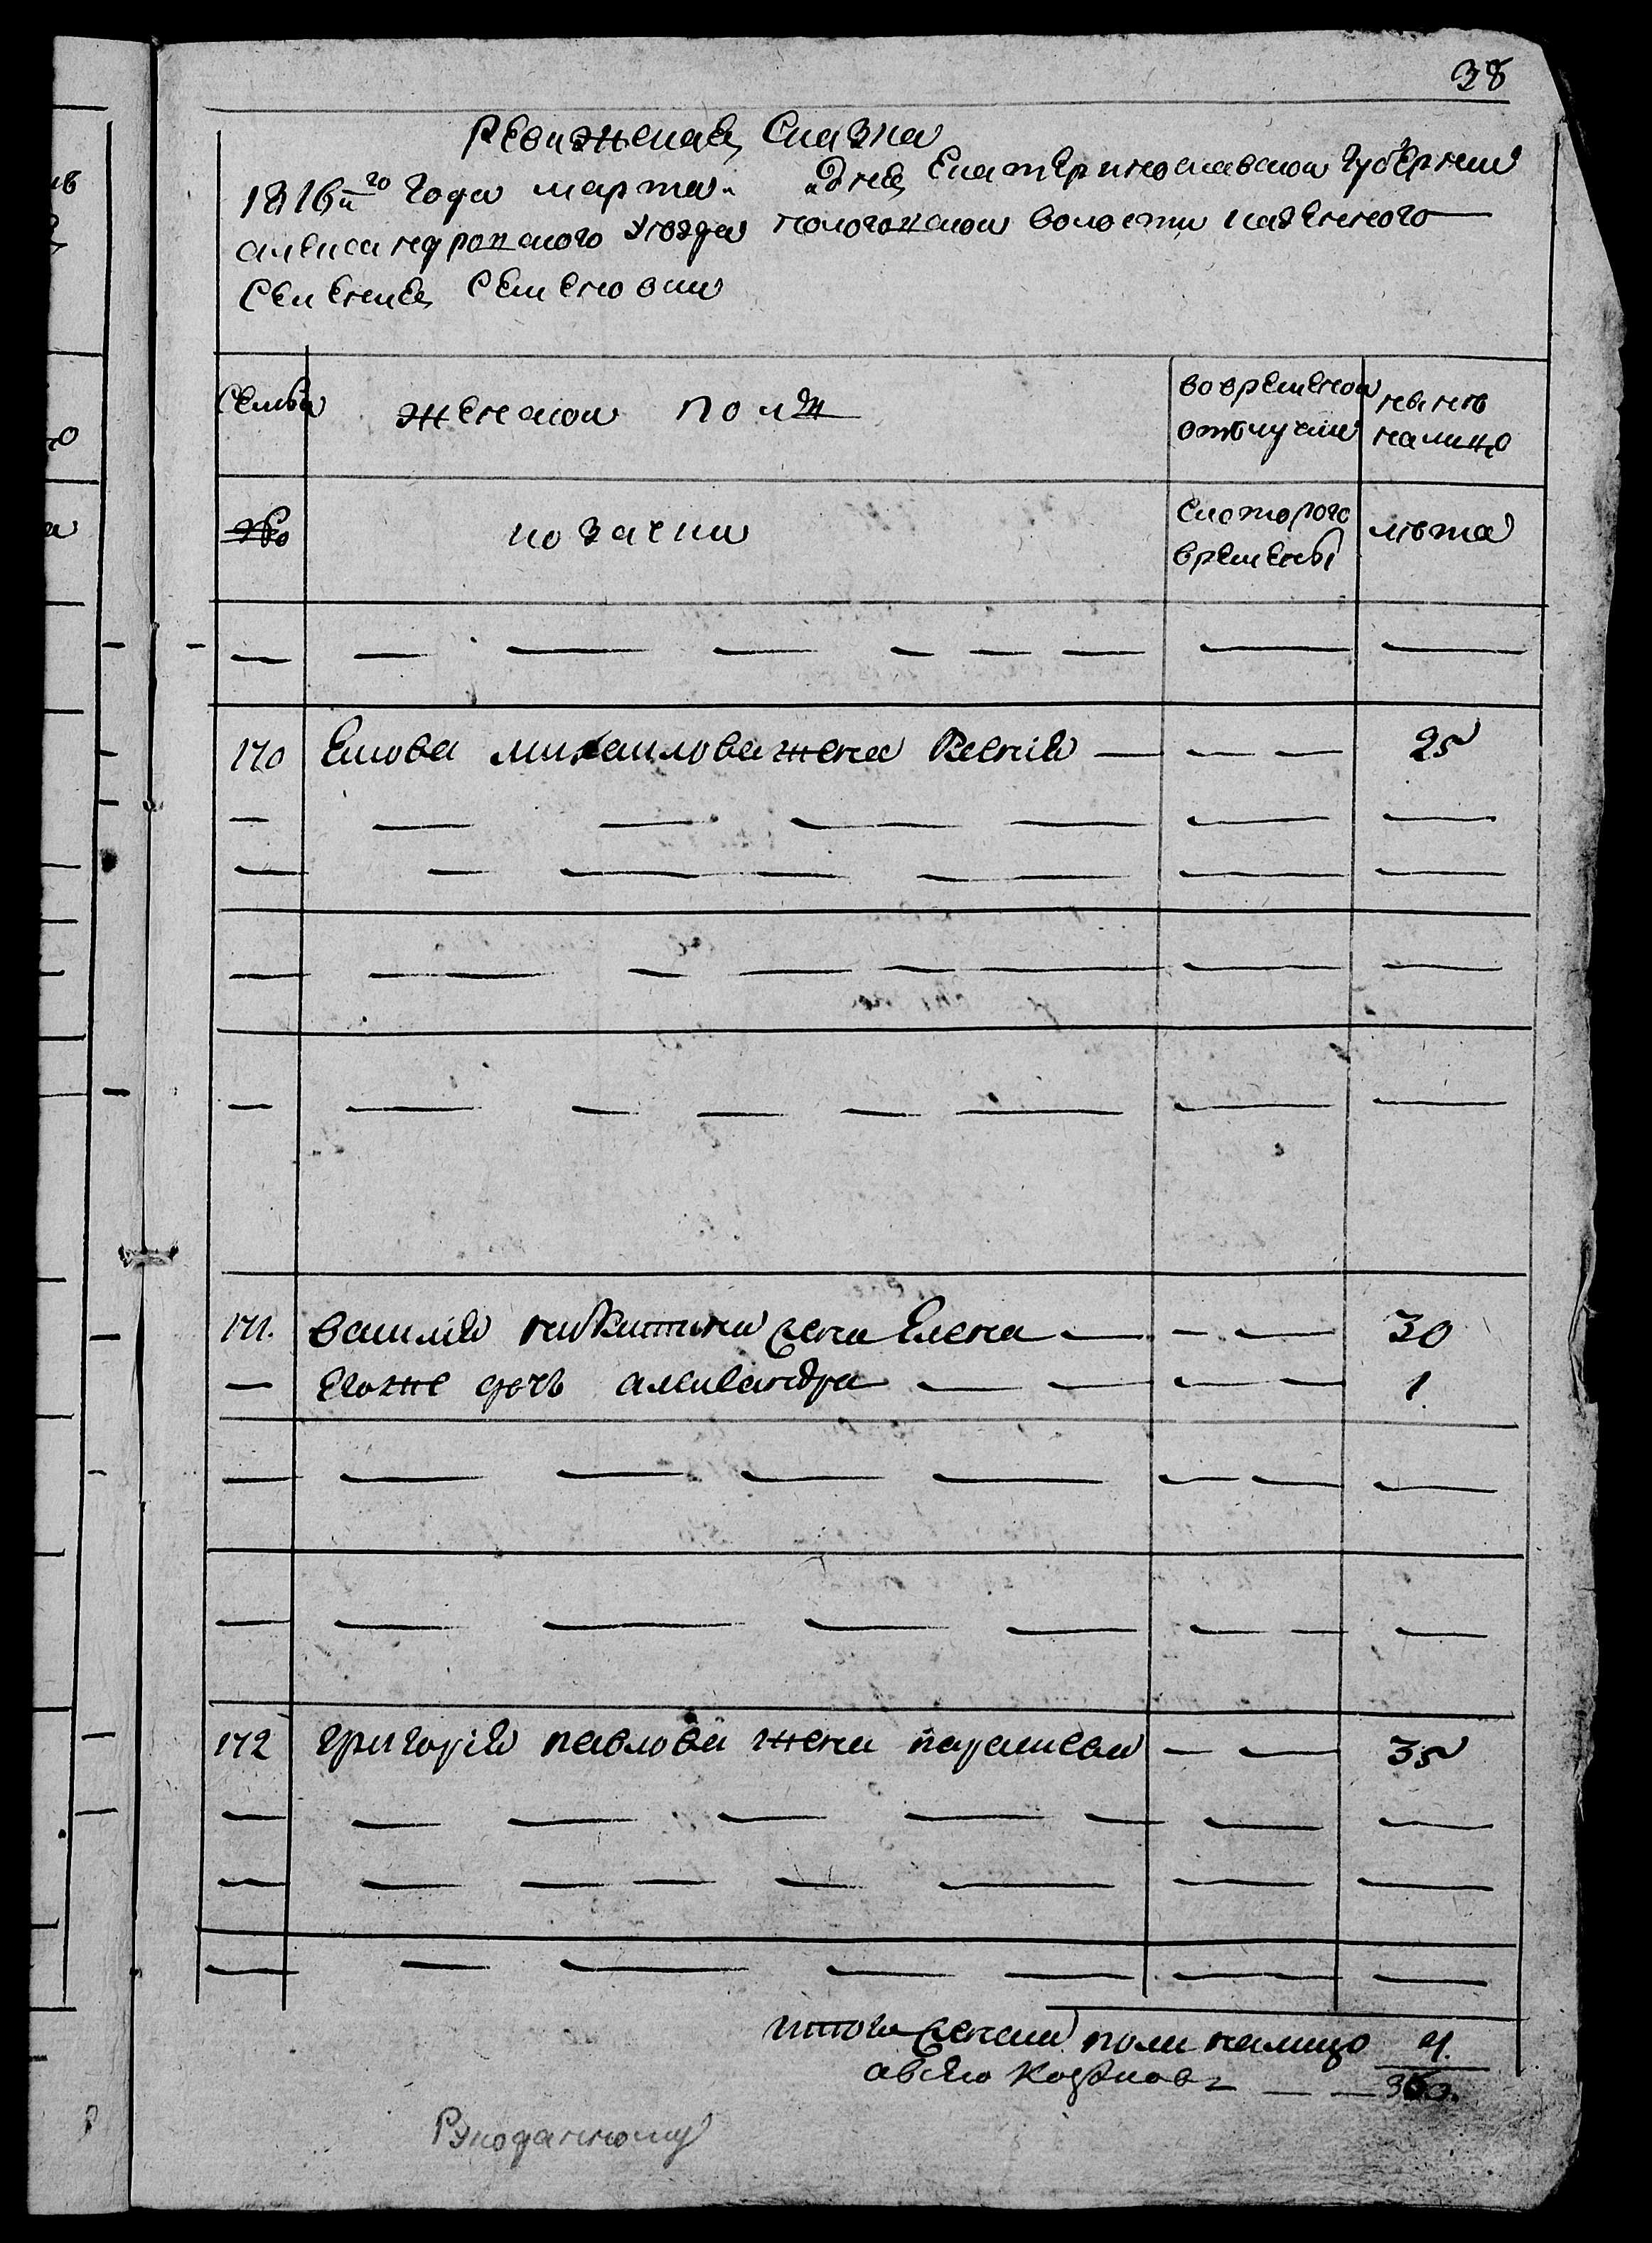 38
Ревижская Сказка
1816го года марта „ „ дня Екатеринославской Губернии
александровского уезда пологожской волости казенного
Селения Семеновки
Семьи женской пол во временой отлучки нынѣ налицо
№ козачки Скоторого времены лѣта
170 Якова михайлова жена Ксенія 25
171. василія никитина жена Елена 30
Егоже дочь александра 1
172 григорія павлова жена параскева 35
итого женска пола налицо 4.
авсего